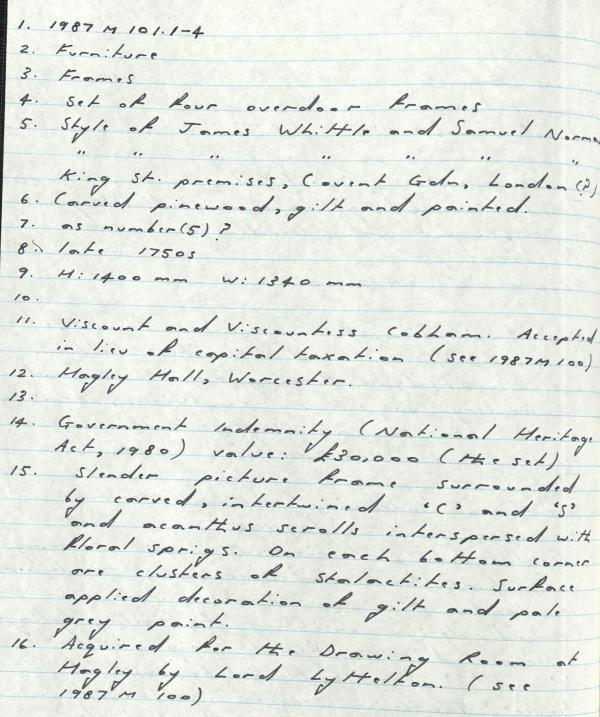 1. 1987 M 101.1-4
2. Furniture
3. Frames
4. Set of four overdoor frames
5. Style of James Whittle and Samuel Norma
" " " " " " "
King St. premises, Covent Gdn, London (?)
6. Carved pinewood, gilt and painted.
7. as number (5) ?
8. late 1750s
9. H: 1400 mm W: 1340 mm
10.
11. Viscount and Viscountess Cobham. Accepted
in lieu of capital taxation (see 1987 M 100)
12. Hagley Hall, Worcester.
13.
14. Government Indemnity (National Heritage
Act, 1980) value: £30,000 (the set)
15. Slender picture frame surrounded
by carved, intertwined 'C' and 'S'
and acanthus scrolls interspersed with
floral sprigs. On each bottom corner
are clusters of stalactites. Surface
applied decoration of gilt and pale
grey paint.
16. Acquired for the Drawing Room at
Hagley by Lord Lyttelton. (see
1987 M 100)